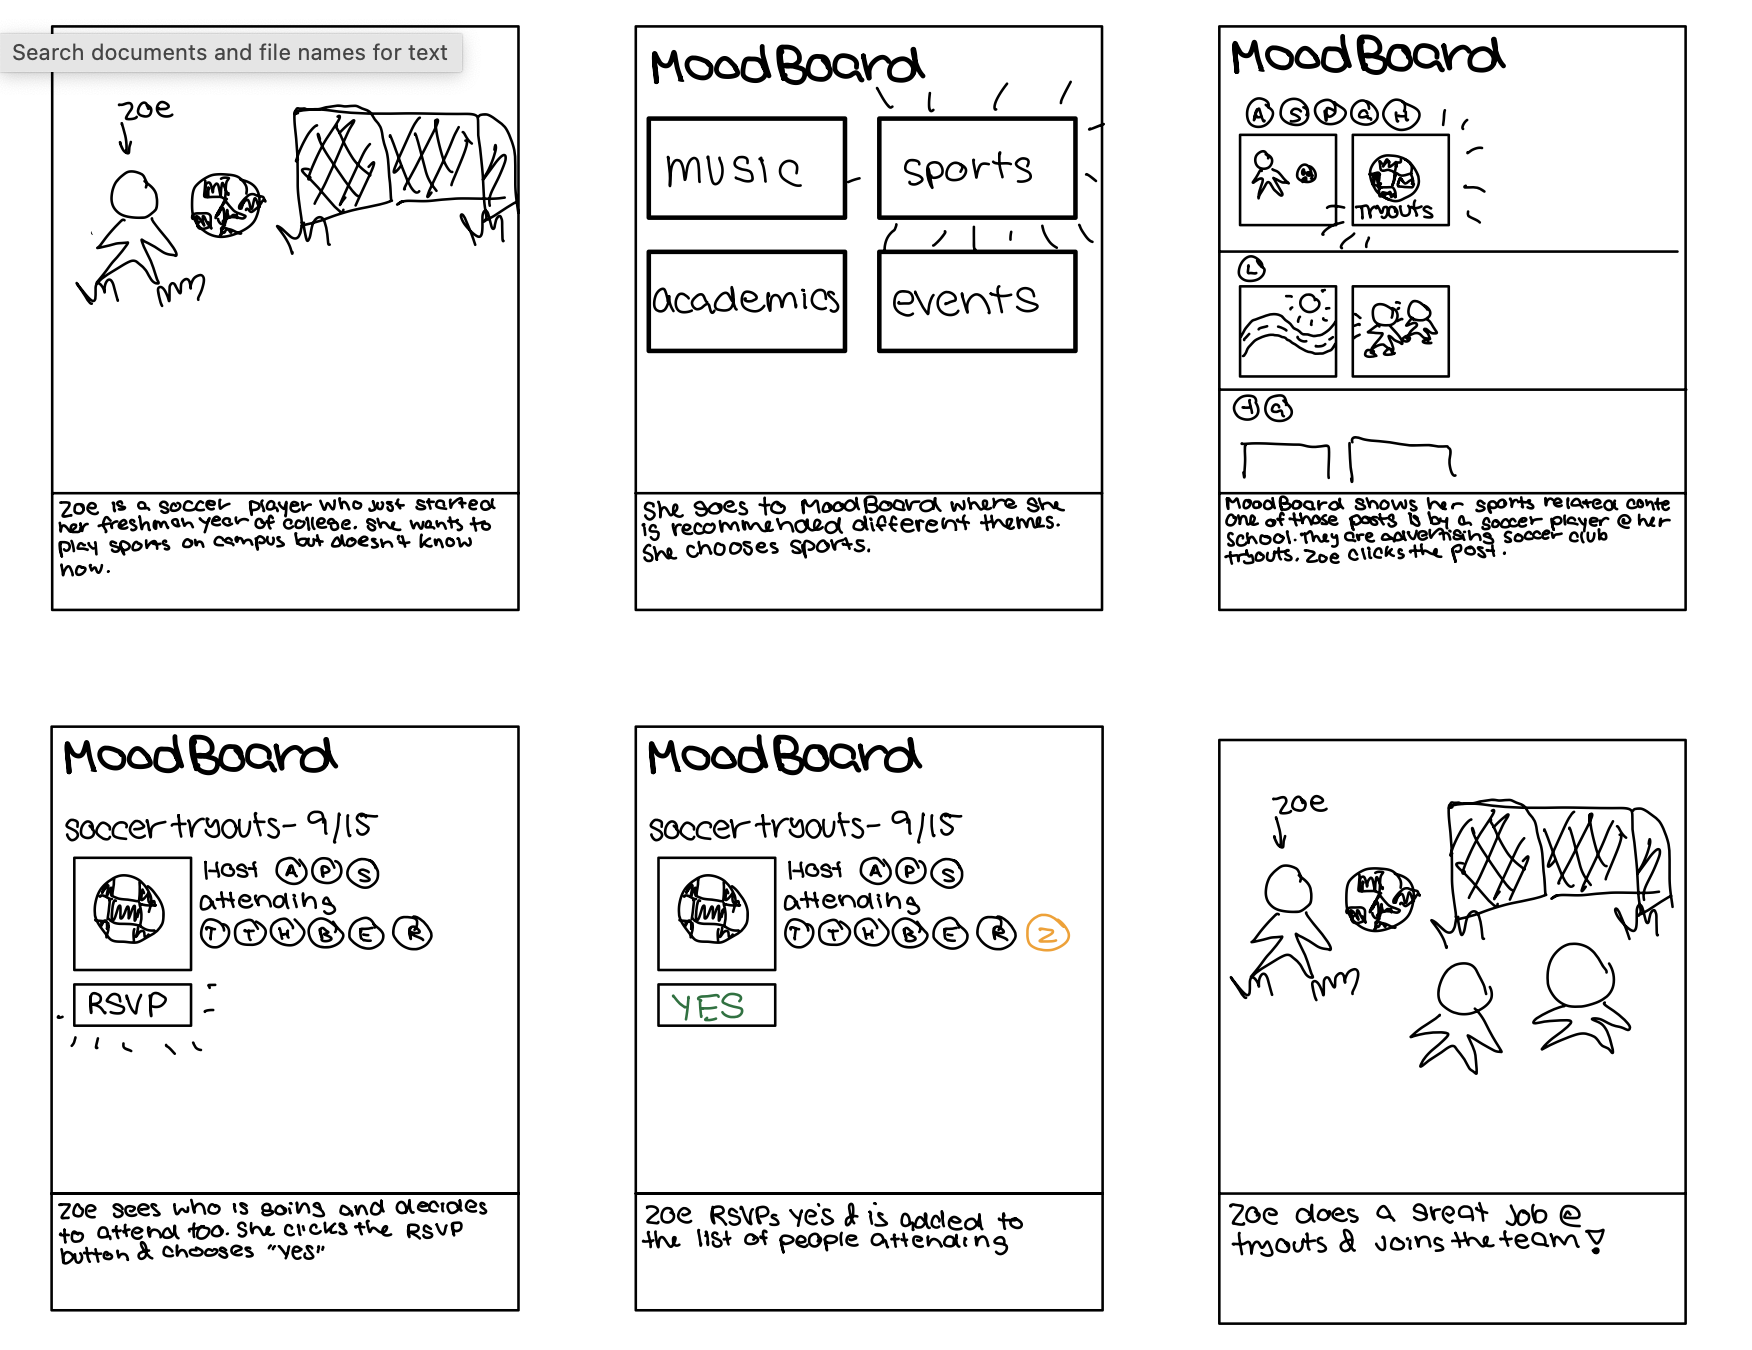 Search documents and file names for text
zoe
Zoe is a soccer player who just started
her freshman year of college. She wants to
play sports on campus but doesn't know
how.
MoodBoard
music
sports
academics
events
She goes to MoodBoard where she
is recommended different themes.
She chooses sports.
MoodBoard
A S P a H
Tryouts
L
MoodBoard shows her sports related conte
One of those posts is by a soccer player @ her
school. They are advertising soccer club
tryouts. Zoe clicks the post.
MoodBoard
soccer tryouts- 9/15
Host A P S
attending
T T H B E R
RSVP
Zoe sees who is going and decides
to attend too. She clicks the RSVP
button & chooses "yes"
MoodBoard
soccer tryouts- 9/15
Host A P S
attending
T T H B E R Z
YES
Zoe RSVPs yes & is added to
the list of people attending
zoe
Zoe does a great job @
tryouts & joins the team!